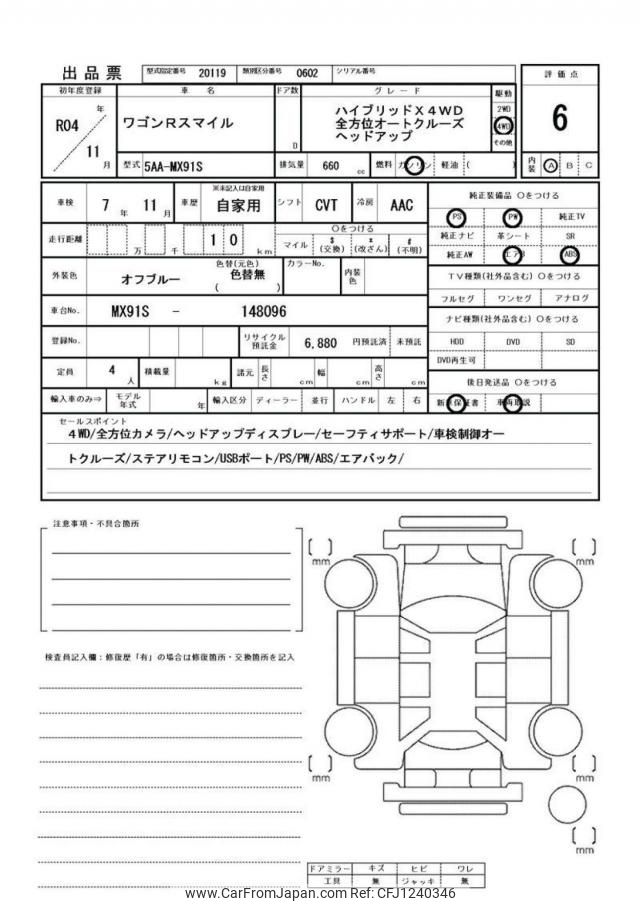 出品票 型式指定番号 20119 類別区分番号 0602 シリアル番号
評価点
初年度登録 車名 ドア数 グレード 駆動
R04 年 11 月
ワゴンRスマイル
D
ハイブリッドX4WD
全方位オートクルーズ
ヘッドアップ
2WD
4WD
その他
6
型式 5AA-MX91S 排気量 660 cc 燃料 ガソリン 軽油 ( )
内装 A B C
車検 7年 11月 車歴 ※未記入は自家用 自家用 シフト CVT 冷房 AAC
純正装備品 〇をつける
PS PW 純正TV
走行距離 万 千 10 km
〇をつける
マイル $(交換) *(改ざん) #(不明)
純正ナビ 革シート SR
純正AW エアB ABS
外装色 オフブルー 色替(元色) 色替無 ( ) カラーNo. 内装色
TV種類(社外品含む) 〇をつける
フルセグ ワンセグ アナログ
車台No. MX91S - 148096
ナビ種類(社外品含む) 〇をつける
登録No. リサイクル預託金 6,880 円預託済 未預託
HDD DVD SD
DVD再生可
定員 4人 積載量 kg 諸元 長さ cm 幅 cm 高さ cm
後日発送品 〇をつける
輸入車のみ⇒ モデル年式 年 輸入区分 ディーラー 並行 ハンドル 左 右
新車保証書 車両取説
セールスポイント
4WD/全方位カメラ/ヘッドアップディスプレー/セーフティサポート/車検制御オー
トクルーズ/ステアリモコン/USBポート/PS/PW/ABS/エアバック/
注意事項・不具合箇所
検査員記入欄：修復歴「有」の場合は修復箇所・交換箇所を記入
[ ] mm
[ ] mm
[ ] mm
[ ] mm
[ ] mm
ドアミラー キズ ヒビ ワレ
工具 無 ジャッキ 無
www.CarFromJapan.com CFJ1240346